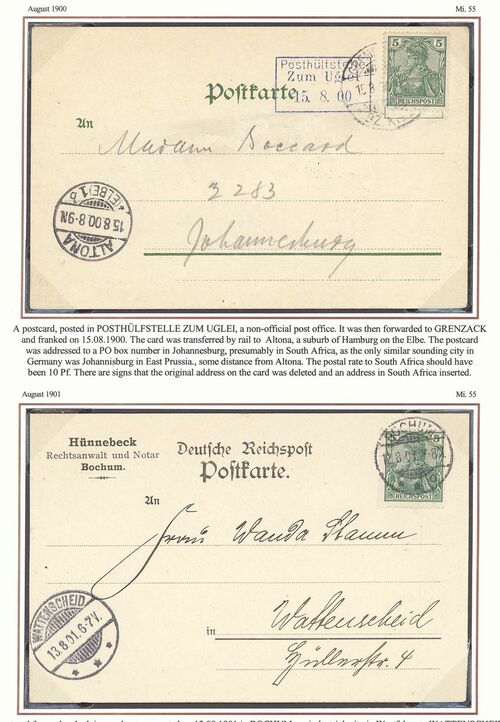 August 1900 Mi. 55
Posthülfstelle
Zum Uglei
15. 8. 00
5 5
REICHSPOST
Postkarte
An
Madam Boccard
3 2283
Johannesburg
ALTONA
15.8.00.8-9N
*(ELBE)1b
A postcard, posted in POSTHÜLFSTELLE ZUM UGLEI, a non-official post office. It was then forwarded to GRENZACK
and franked on 15.08.1900. The card was transferred by rail to Altona, a suburb of Hamburg on the Elbe. The postcard
was addressed to a PO box number in Johannesburg, presumably in South Africa, as the only similar sounding city in
Germany was Johannisburg in East Prussia., some distance from Altona. The postal rate to South Africa should have
been 10 Pf. There are signs that the original address on the card was deleted and an address in South Africa inserted.
August 1901 Mi. 55
Hünnebeck
Rechtsanwalt und Notar
Bochum.
Deutsche Reichspost
Postkarte.
BOCHUM
5
REICHSPOST
An
Frau Wanda Stamm
WATTENSCHEID
13.8.01.6-7V.
* * *
in Wattenscheid
Hüllerstr. 4